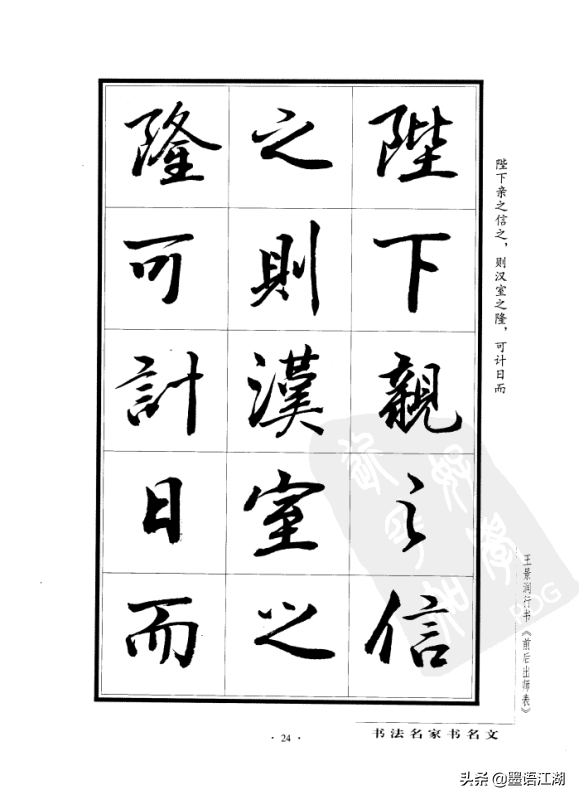 陛下親之信
之則漢室之
隆可計日而
陛下亲之信之，则汉室之隆，可计日而
王景润行书《前后出师表》
·24·
书法名家书名文
头条@墨语江湖